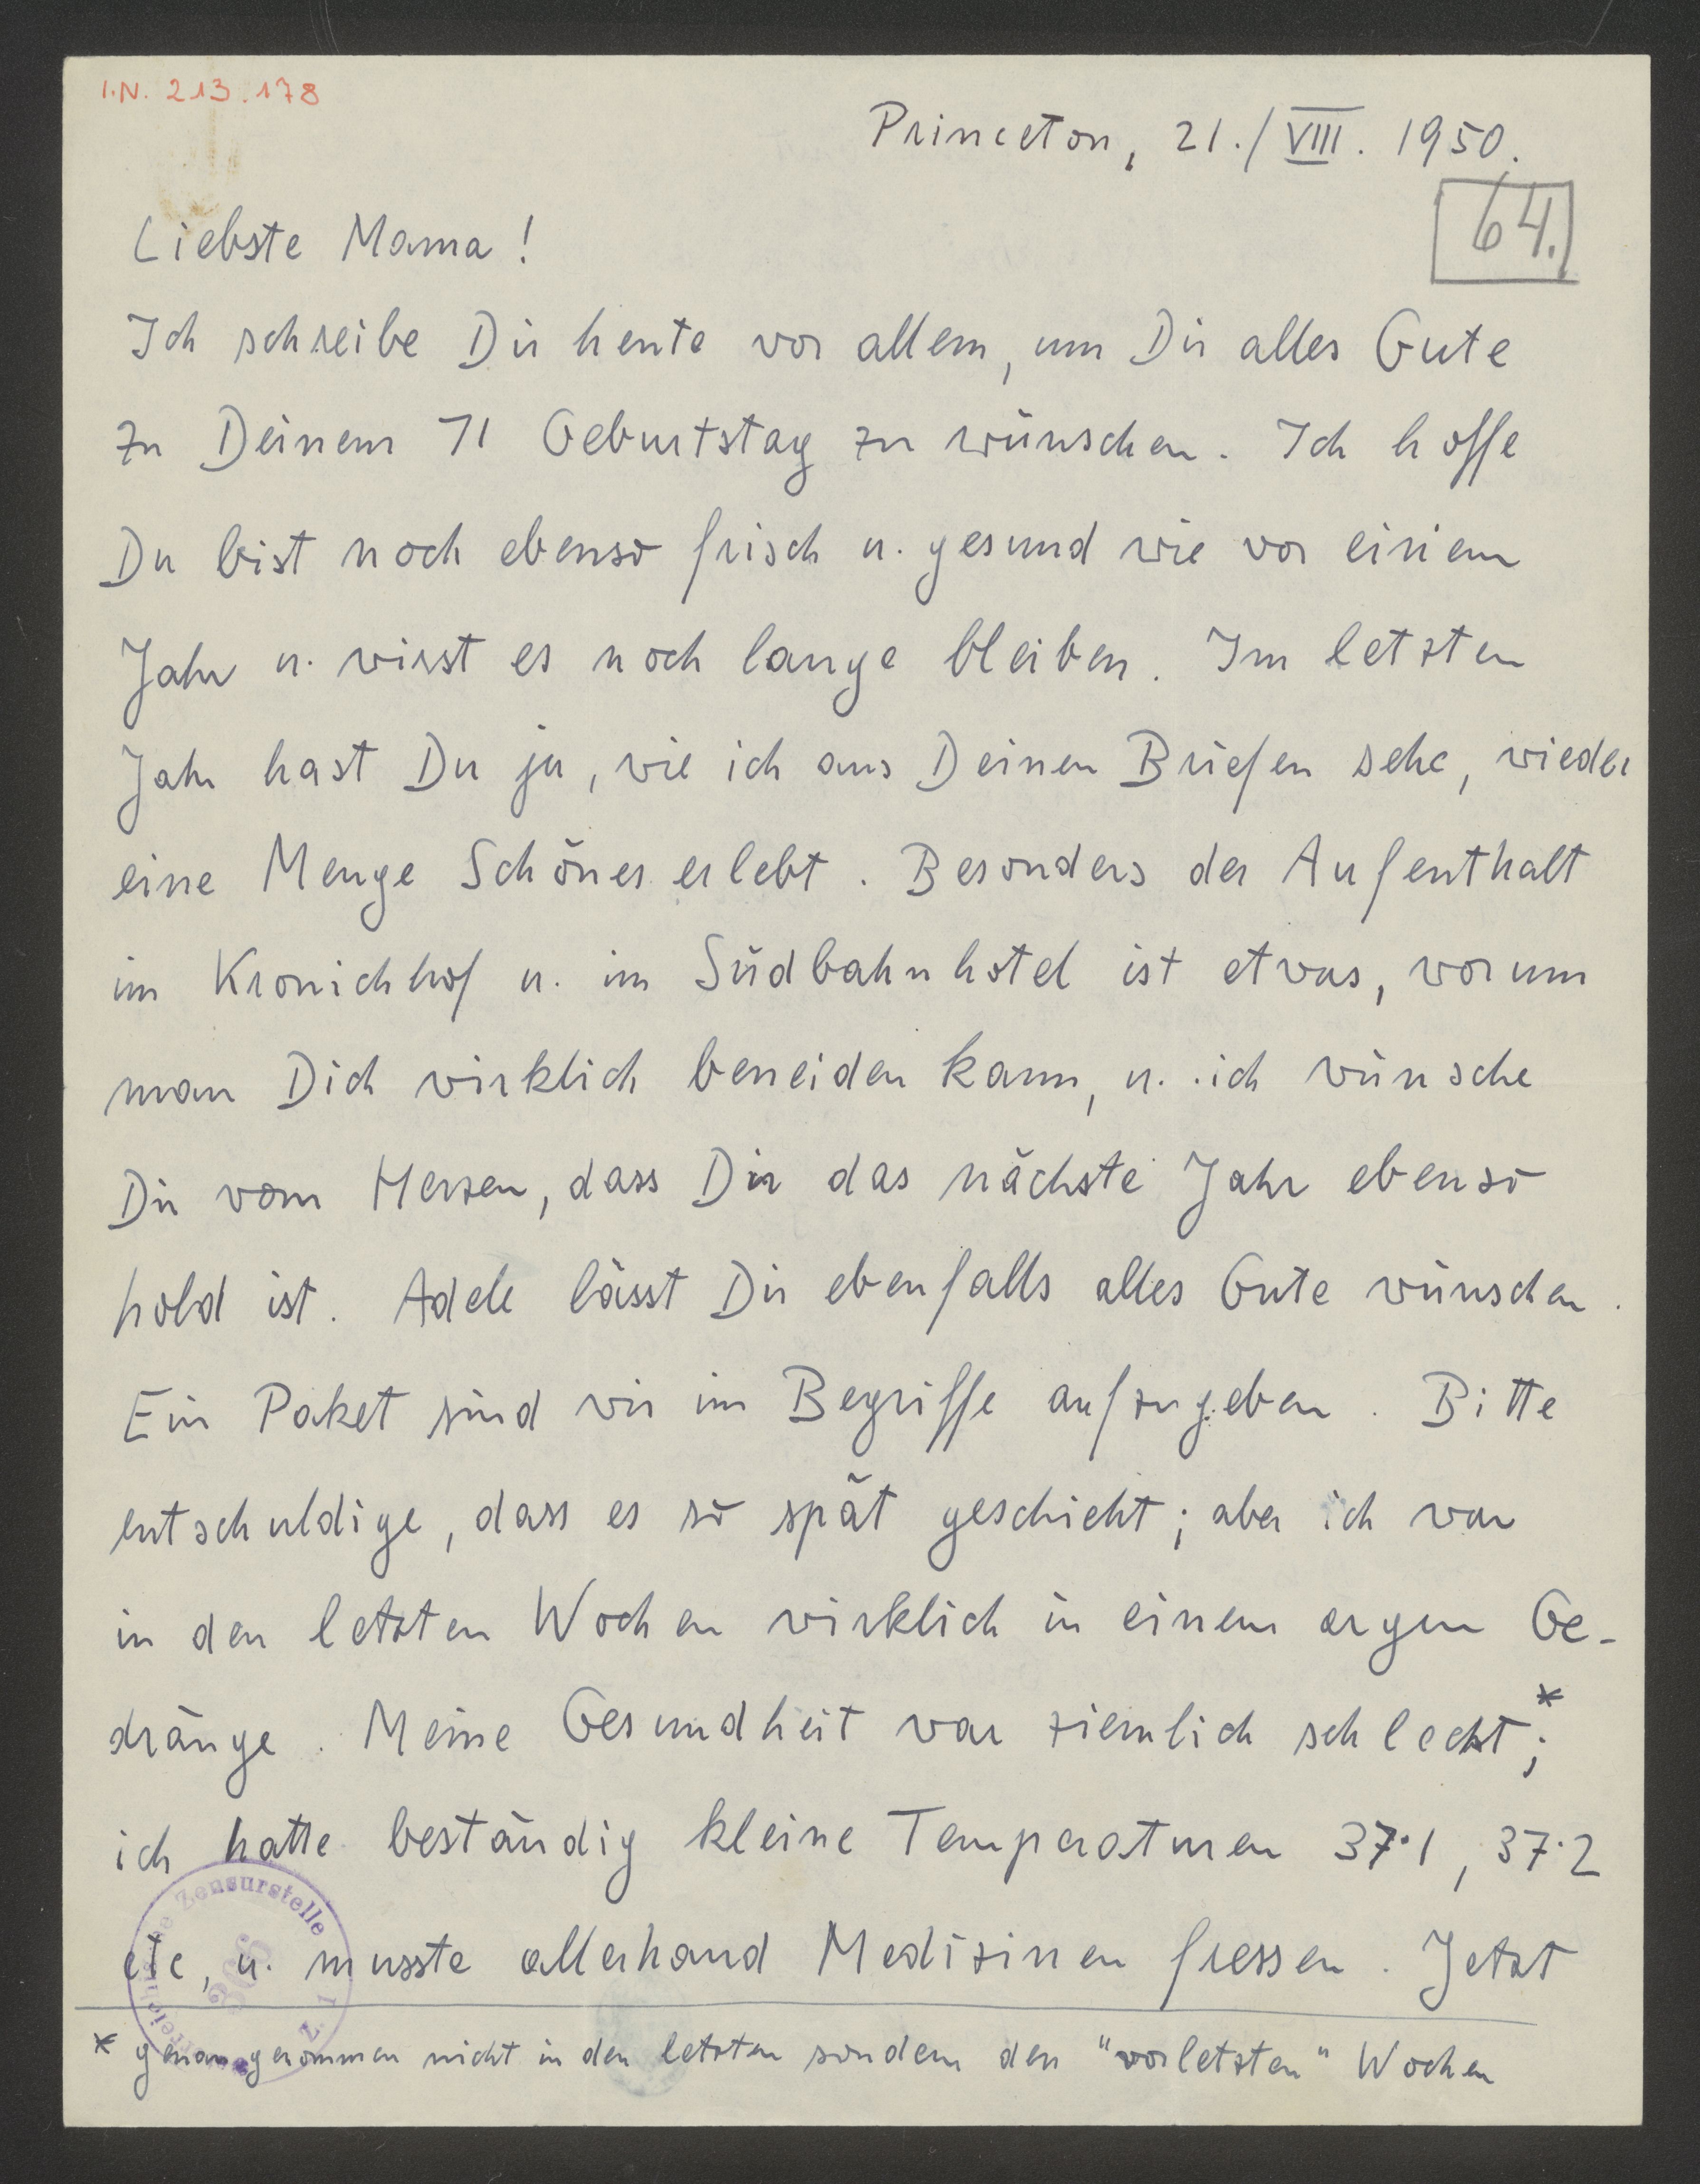 I.N. 213.178
Princeton, 21./VIII. 1950.
64.
Liebste Mama!
Ich schreibe Dir heute vor allem, um Dir alles Gute
zu Deinem 71 Geburtstag zu wünschen. Ich hoffe
Du bist noch ebenso frisch u. gesund wie vor einem
Jahr u. wirst es noch lange bleiben. Im letzten
Jahr hast Du ja, wie ich aus Deinen Briefen sehe, wieder
eine Menge Schönes erlebt. Besonders der Aufenthalt
im Kronichhof u. im Südbahnhotel ist etwas, worum
man Dich wirklich beneiden kann, u. ich wünsche
Dir vom Herzen, dass Dir das nächste Jahr ebenso
hold ist. Adele lässt Dir ebenfalls alles Gute wünschen.
Ein Paket sind wir im Begriffe aufzugeben. Bitte
entschuldige, dass es so spät geschieht; aber ich war
in den letzten Wochen wirklich in einem argen Ge-
dränge. Meine Gesundheit war ziemlich schlecht*;
ich hatte beständig kleine Temperaturen 37·1, 37·2
etc, u. musste allerhand Medizinen fressen. Jetzt
* genau genommen nicht in den letzten sondern den "vorletzten" Wochen
Zensurstelle